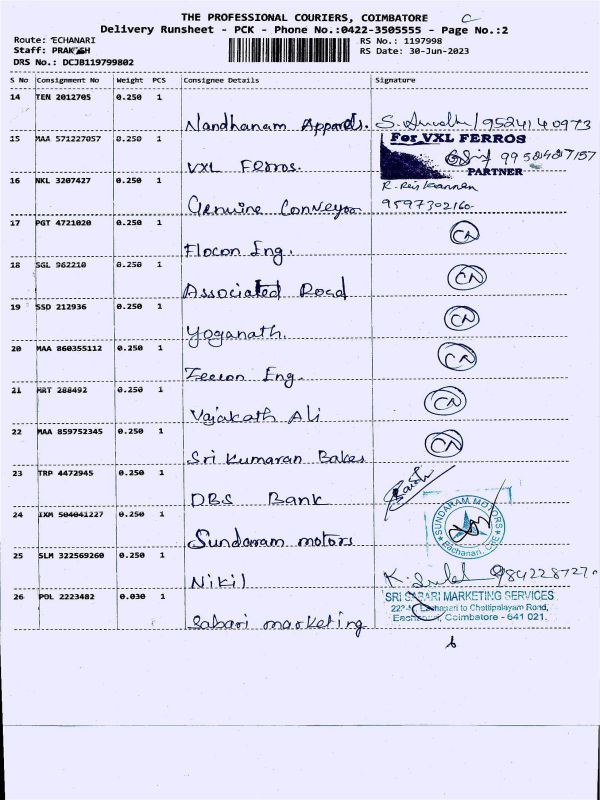 THE PROFESSIONAL COURIERS, COIMBATORE
Delivery Runsheet - PCK - Phone No.:0422-3505555 - Page No.:2
Route: ECHANARI
RS No.: 1197998
Staff: PRAKASH
RS Date: 30-Jun-2023
DRS No.: DCJB119799802
S No Consignment No Weight PCS Consignee Details Signature
14 TEN 2012705 0.250 1
Nandhanam Apparels. 9524140973
15 MAA 571227057 0.250 1
For VXL FERROS
VXL Ferros.
PARTNER
16 NKL 3207427 0.250 1
Genuine Conveyor 9597302160
17 PGT 4721020 0.250 1
CN
Flocon Eng.
18 SGL 962210 0.250 1
CN
Associated Road
19 SSD 212936 0.250 1
CN
Yoganath.
20 MAA 860355112 0.250 1
CN
Zecon Eng.
21 MRT 288492 0.250 1
CN
Vajakath Ali
22 MAA 859752345 0.250 1
CN
Sri Kumaran Bakes
23 TRP 4472945 0.250 1
DBS Bank
24 IXM 504041227 0.250 1
SUNDARAM MOTORS
Eachanari, CBE
Sundaram motors
25 SLM 322569260 0.250 1
Nikil
26 POL 2223482 0.030 1
SRI SABARI MARKETING SERVICES
Eachanari to Chettipalayam Road,
Eachanari, Coimbatore - 641 021.
Sabari marketing